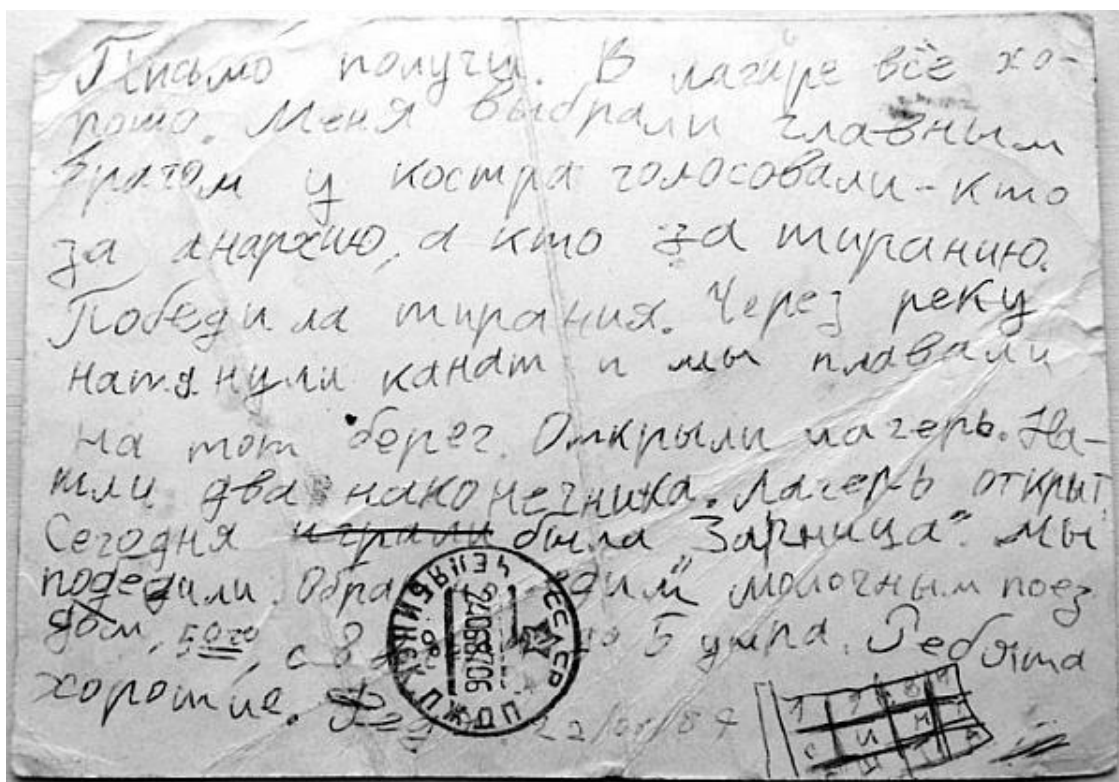 Письмо получил. В лагере всё хо-
рошо. Меня выбрали главным
врагом у костра голосовали - кто
за анархию, а кто за тиранию.
Победила тирания. Через реку
натянули канат и мы плавали
на тот берег. Открыли лагерь. На-
шли два наконечника. Лагерь открыт.
Сегодня играли была "Зарница". Мы
победили. молочным поез
дом, 5 утра. Ребята
хорошие.
СССР
ЧЕЛЯБИНСК ПЖДП